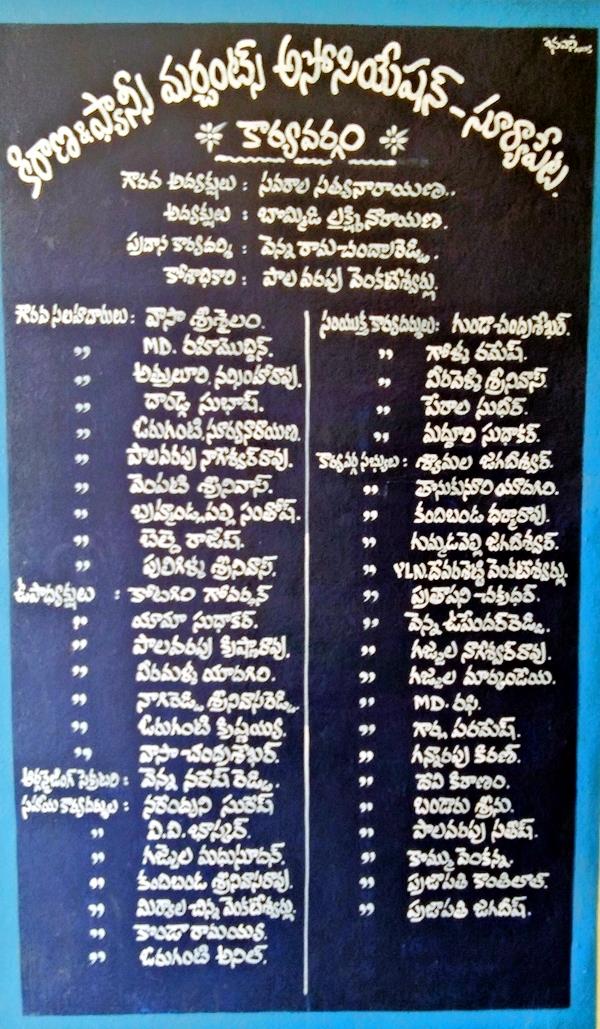 కిరాణ & ఫ్యాన్సీ మర్చంట్స్ అసోసియేషన్ - సూర్యాపేట.
కార్యవర్గం
గౌరవ అధ్యక్షులు : సవరాల సత్యనారాయణ..
అధ్యక్షులు : బొమ్మిడి లక్ష్మీనారాయణ.
ప్రధాన కార్యదర్శి : వెన్న రామచంద్రారెడ్డి.
కోశాధికారి : పాలవరపు వెంకటేశ్వర్లు.
గౌరవ సలహాదారులు : వాసా శ్రీశైలం.
" MD. రహిమొద్దిన్.
" అత్తులూరి. నర్సింహారావు.
" దారెడ్డి సుభాష్.
" ఓరుగంటి. సూర్యనారాయణ.
" పాలవరపు నాగేశ్వర్ రావు.
" వెంపటి శ్రీనివాస్.
" బ్రహ్మాండ్లపల్లి సంతోష్.
" చెల్దె రాజేష్.
" పులిగిళ్ళ శ్రీనివాస్.
ఉపాధ్యక్షులు : కోటగిరి గోవర్ధన్
" యామా సుధాకర్.
" పాలవరపు కృష్ణారావు.
" వీరమళ్ళ యాదగిరి.
" నాగిరెడ్డి శ్రీనివాసరెడ్డి.
" ఓరుగంటి కృష్ణయ్య.
" వాసా చంద్రశేఖర్.
ఆర్గనైజింగ్ సెక్రటరి : వెన్న నరేష్ రెడ్డి.
సహాయ కార్యదర్శులు : నరేంద్రుని సురేష్
" వి.వి. భాస్కర్.
" గజ్జెల మధుసూదన్.
" కందిబండ శ్రీనివాసరావు.
" మిర్యాల చిన్న వెంకటేశ్వర్లు.
" కొండా రామయ్య.
" ఓరుగంటి అనిల్.
సంయుక్త కార్యదర్శులు : గుండా చంద్రశేఖర్.
" గోళ్ళ రమేష్.
" వీరవెళ్ళి శ్రీనివాస్.
" పేరాల సుధీర్.
" మద్దూరి సుధాకర్.
కార్యవర్గ సభ్యులు : శ్యామల జగదీశ్వర్.
" తానుకునూరి యాదగిరి.
" కందిబండ ధర్మారావు.
" గుమ్మడవెల్లి జగదీశ్వర్.
" Y.L.N. దేవరశెట్టి వెంకటేశ్వర్లు.
" ప్రతాపని చక్రధర్.
" వెన్న ఉపేందర్ రెడ్డి.
" గజ్జెల నాగేశ్వర్ రావు.
" గజ్జెల మార్కండేయ.
" MD. రఫి.
" గార్లపరమేష్.
" గన్నారపు కిరణ్.
" దేవి కిరాణం.
" బండారు శ్రీను.
" పాలవరపు సతీష్.
" కామ్ళ వెంకన్న.
" ప్రజాపతి కాంతిలాల్.
" ప్రజాపతి జగదీష్.